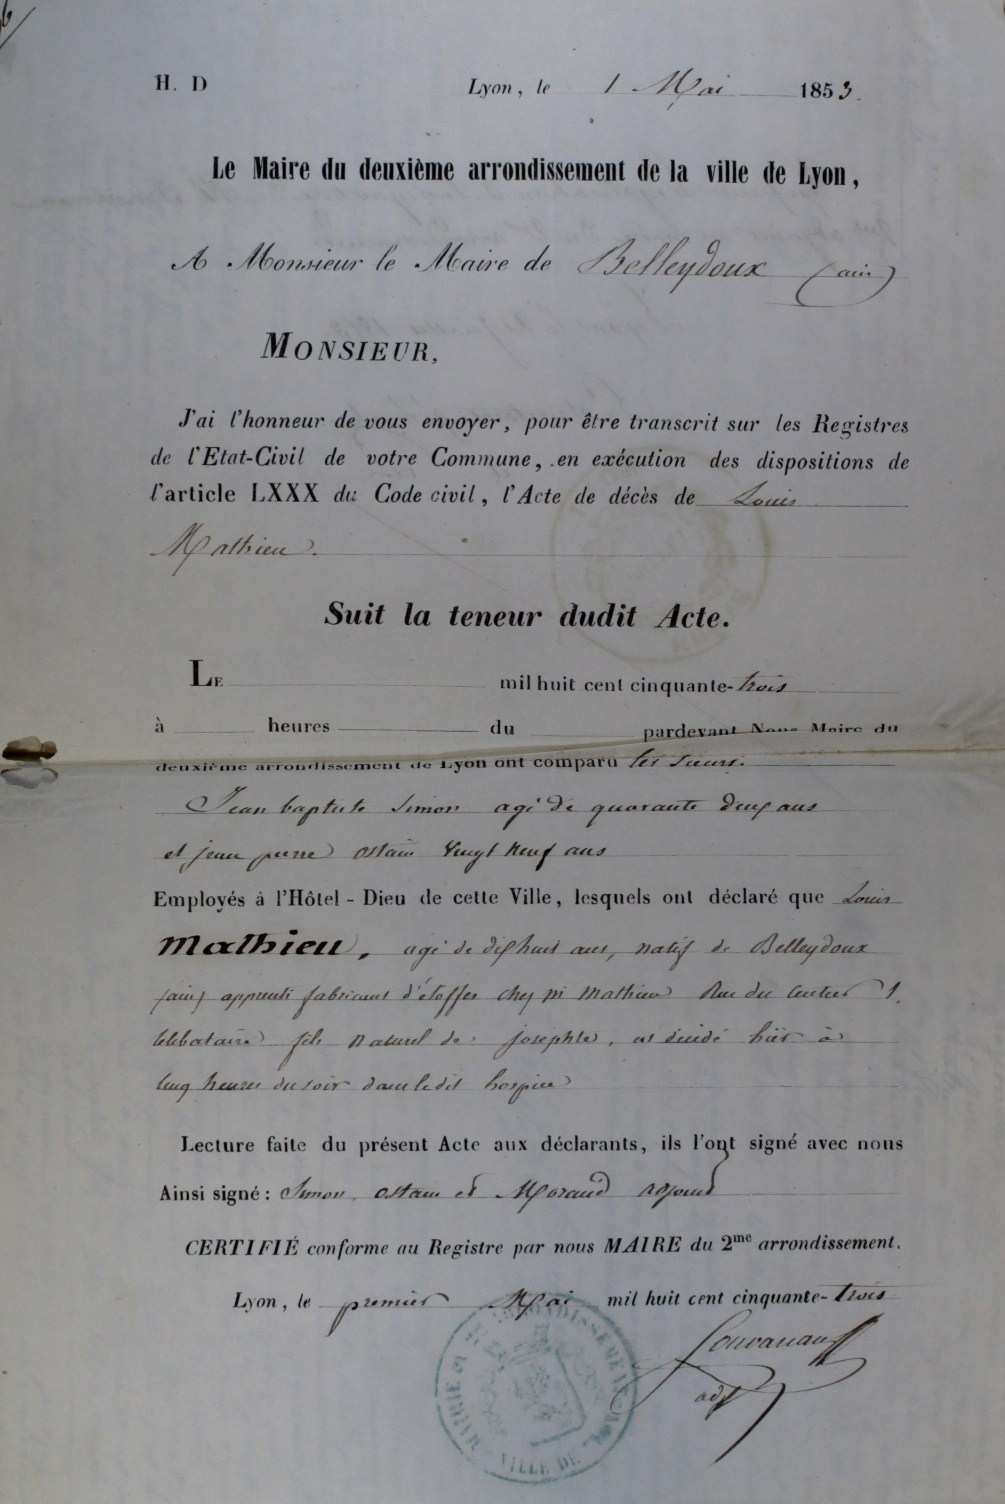 H. D Lyon, le 1 Mai 1853.
Le Maire du deuxième arrondissement de la ville de Lyon,
A Monsieur le Maire de Belleydoux (ain)
MONSIEUR,
J'ai l'honneur de vous envoyer, pour être transcrit sur les Registres
de l'Etat-Civil de votre Commune, en exécution des dispositions de
l'article LXXX du Code civil, l'Acte de décès de Louis
Mathieu.
Suit la teneur dudit Acte.
LE mil huit cent cinquante-trois
à heures du pardevant Nous Maire du
deuxième arrondissement de Lyon ont comparu les sieurs.
Jean baptiste Simon agé de quarante deux ans
et jean pierre ostain vingt neuf ans
Employés à l'Hôtel-Dieu de cette Ville, lesquels ont déclaré que Louis
Mathieu, agé de dix huit ans, natif de Belleydoux
(ain) apprenti fabricant d'étoffes chez mr Mathieu Rue du 1.
célibataire fils naturel de josephte, est décédé hier à
cinq heures du soir dans ledit hospice
Lecture faite du présent Acte aux déclarants, ils l'ont signé avec nous
Ainsi signé: Simon, ostain et Morand adjoint
CERTIFIÉ conforme au Registre par nous MAIRE du 2me arrondissement.
Lyon, le premier Mai mil huit cent cinquante-trois
adj
MAIRIE DU ARRONDISSEMENT
VILLE DE